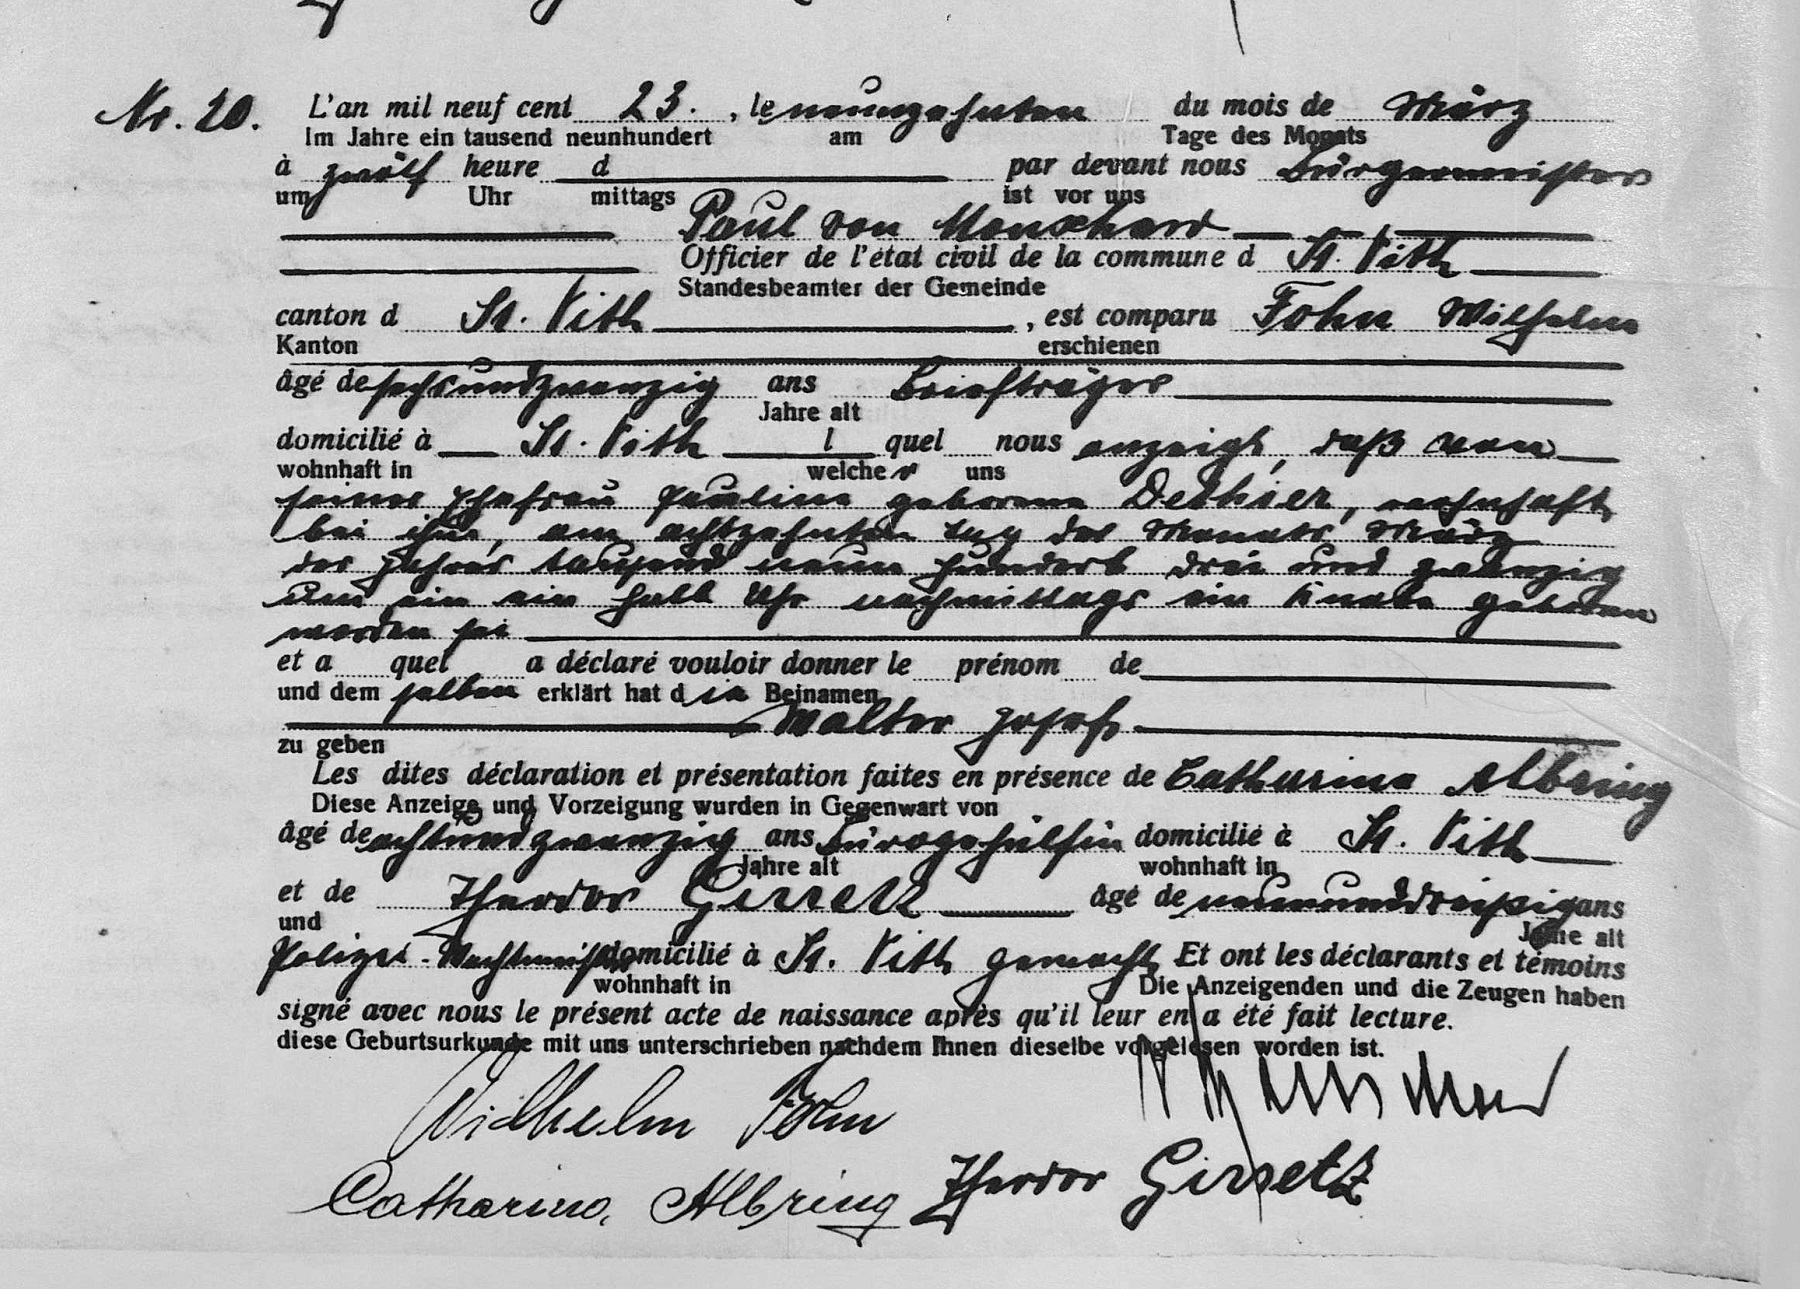 Nr. 20. L'an mil neuf cent 23. , le neunzehnten du mois de März
Im Jahre ein tausend neunhundert am Tage des Monats
à zwölf heure d par devant nous Bürgermeister
um Uhr mittags ist vor uns
Paul von Monschaw
Officier de l'état civil de la commune d St. Vith
Standesbeamter der Gemeinde
canton d St. Vith , est comparu Fohn Wilhelm
Kanton erschienen
âgé de sechsundzwanzig ans Briefträger
Jahre alt
domicilié à St. Vith l quel nous anzeigt, daß von
wohnhaft in welche r uns
seiner Ehefrau Pauline geborene Dethier, wohnhaft
bei ihm, am achtzehnten Tag des Monats März
des Jahres tausend neun hundert drei und zwanzig
um ein ein halb Uhr nachmittags ein Knabe geboren
worden sei
et a quel a déclaré vouloir donner le prénom de
und dem selben erklärt hat d ie Beinamen
Walter Josef
zu geben
Les dites déclaration et présentation faites en présence de Catharina Albring
Diese Anzeige und Vorzeigung wurden in Gegenwart von
âgé de achtundzwanzig ans Bürogehülfin domicilié à St. Vith
Jahre alt wohnhaft in
et de Theodor Girretz âgé de neununddreißig ans
und Jahre alt
Polizei-Wachtmeister domicilié à St. Vith gemacht, Et ont les déclarants et témoins
wohnhaft in Die Anzeigenden und die Zeugen haben
signé avec nous le présent acte de naissance après qu'il leur en a été fait lecture.
diese Geburtsurkunde mit uns unterschrieben nachdem Ihnen dieselbe vorgelesen worden ist.
Wilhelm Fohn
Catharina Albring Theodor Girretz